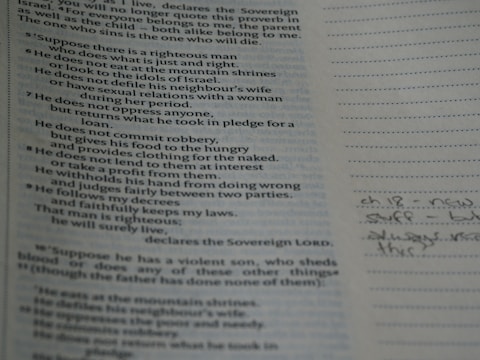 as I live, declares the Sovereign
you will no longer quote this proverb in
Israel. 4 For everyone belongs to me, the parent
as well as the child – both alike belong to me.
The one who sins is the one who will die.
5 'Suppose there is a righteous man
who does what is just and right.
6 He does not eat at the mountain shrines
or look to the idols of Israel.
He does not defile his neighbour's wife
or have sexual relations with a woman
during her period.
7 He does not oppress anyone,
but returns what he took in pledge for a
loan.
He does not commit robbery,
but gives his food to the hungry
and provides clothing for the naked.
8 He does not lend to them at interest
or take a profit from them.
He withholds his hand from doing wrong
and judges fairly between two parties.
9 He follows my decrees
and faithfully keeps my laws.
That man is righteous;
he will surely live,
declares the Sovereign LORD.
10 'Suppose he has a violent son, who sheds
blood or does any of these other things
11 (though the father has done none of them):
'He eats at the mountain shrines.
He defiles his neighbour's wife.
12 He oppresses the poor and needy.
He commits robbery.
He does not return what he took in
pledge.
ch 18 - new
stuff -
always